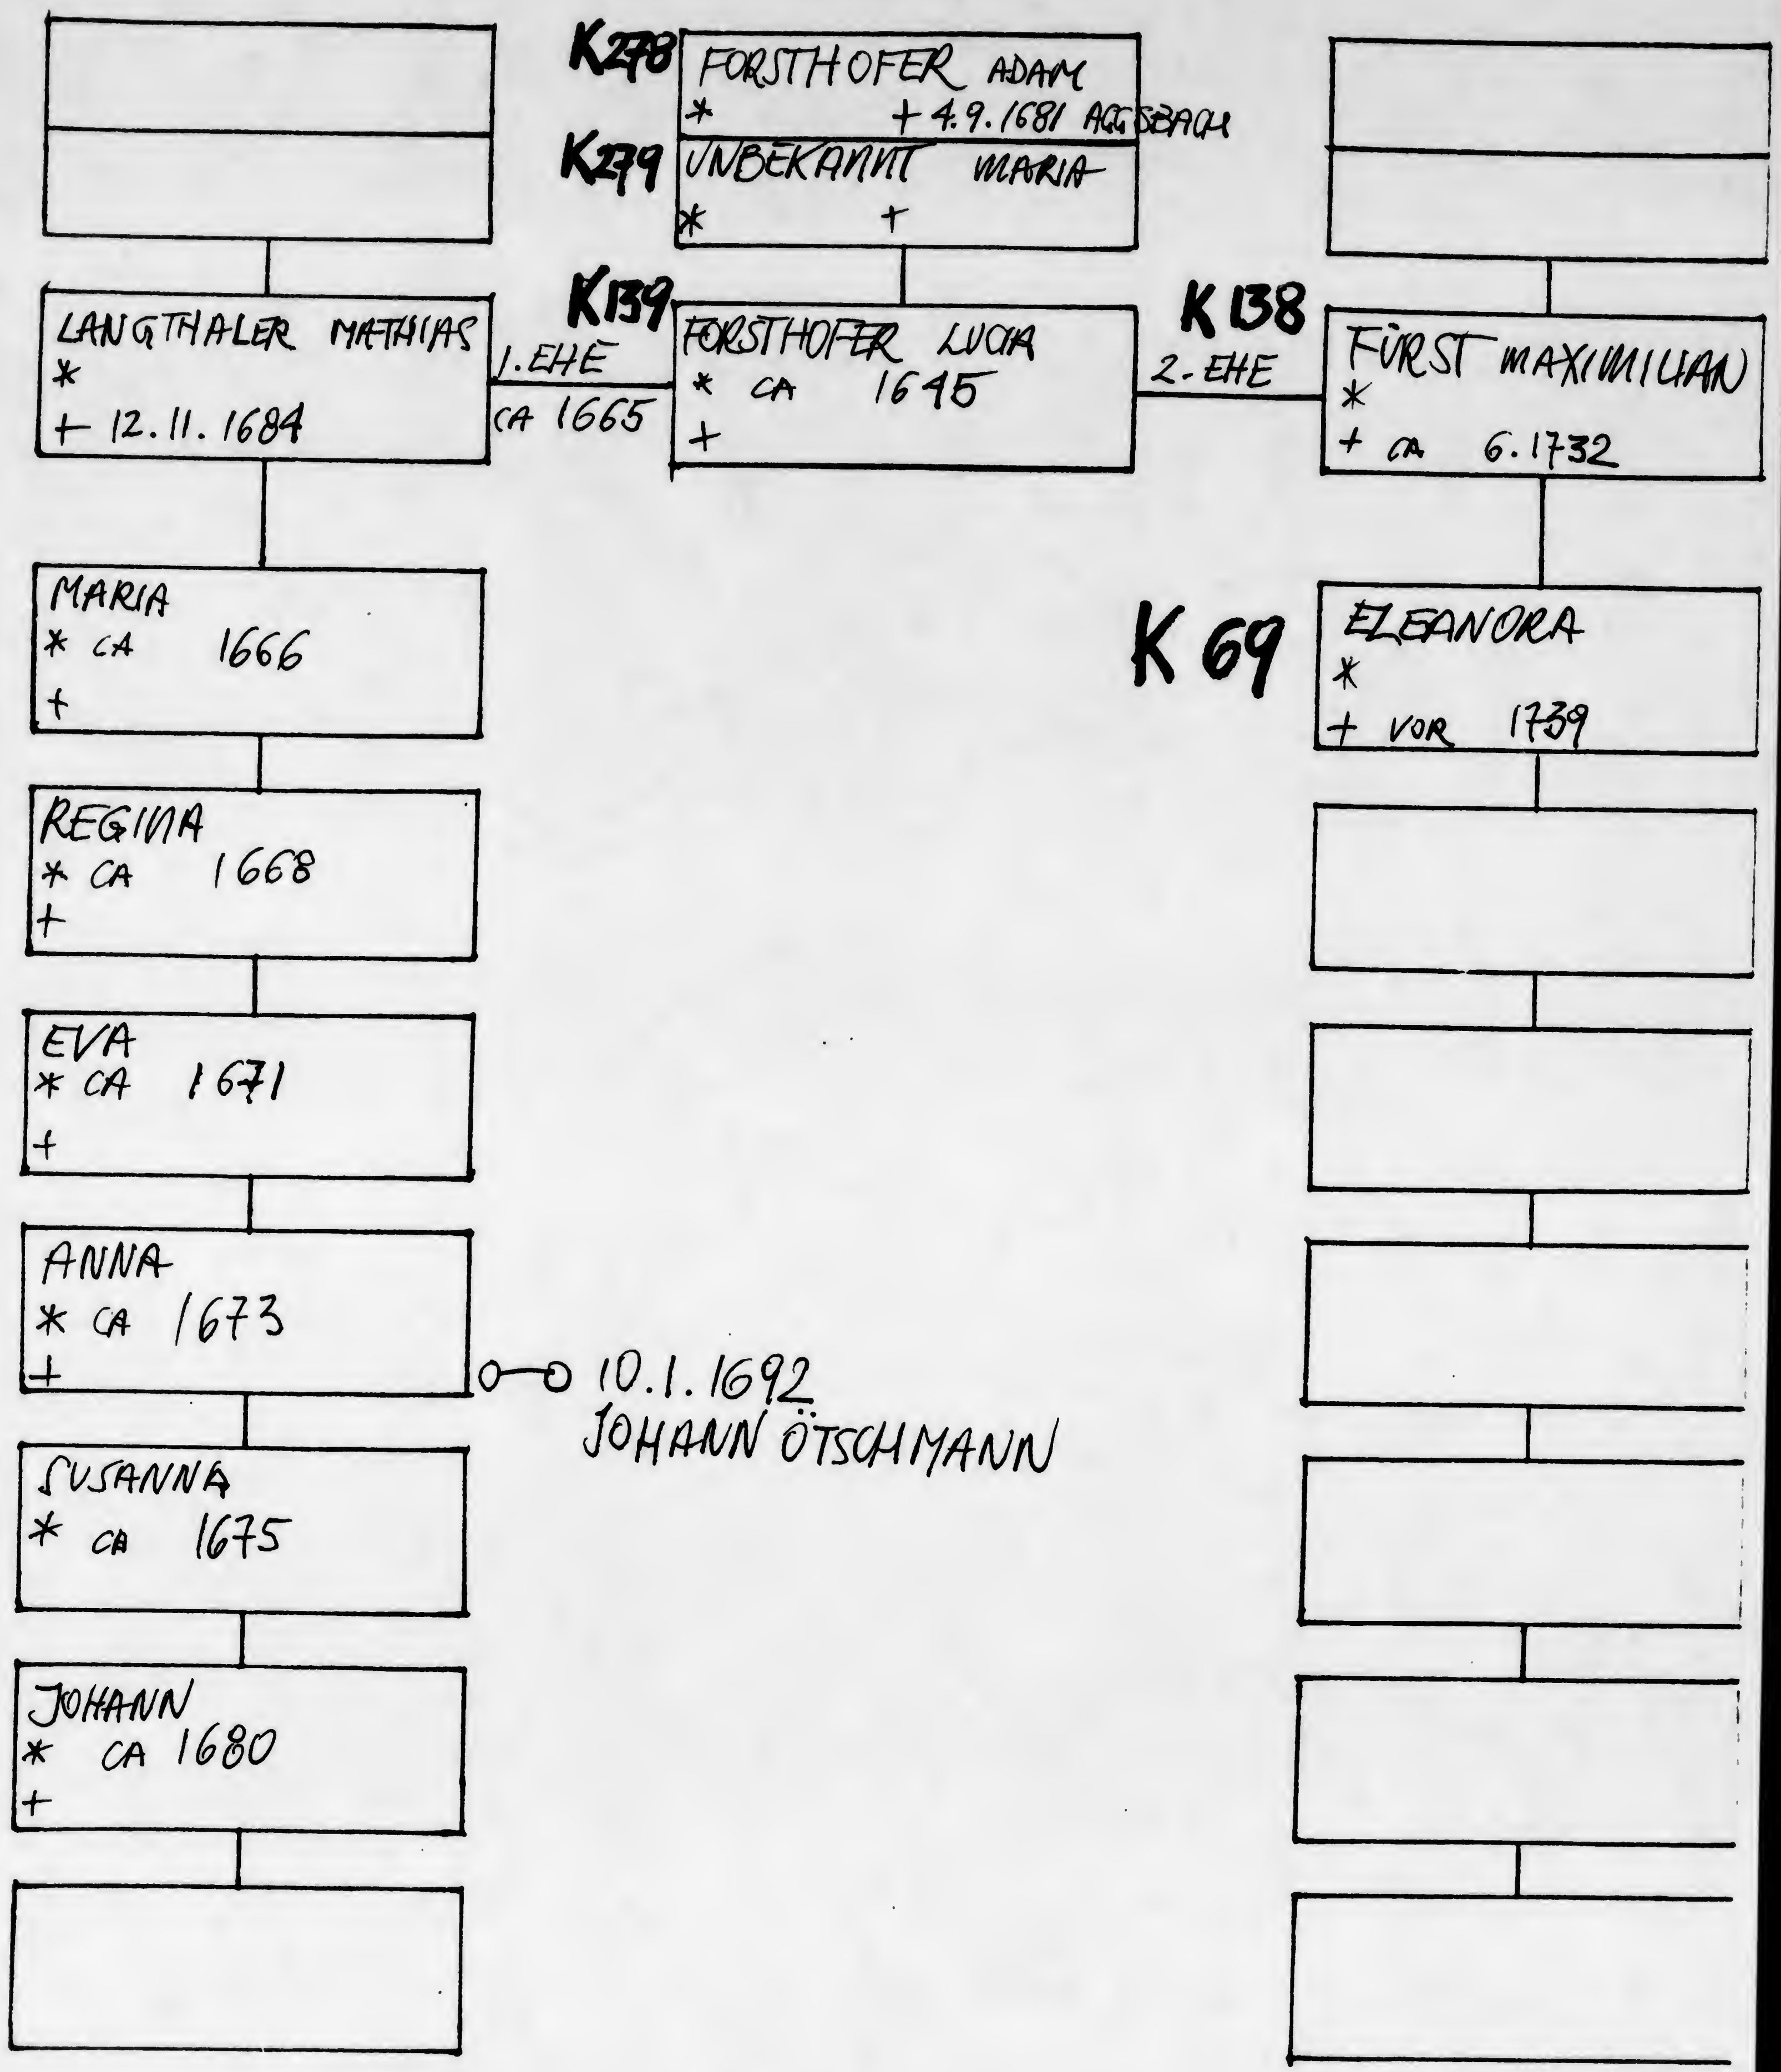 K278
FORSTHOFER ADAM
* + 4.9.1681 AGGSBACH
K279
UNBEKANNT MARIA
* +
LANGTHALER MATHIAS
*
+ 12.11.1684
1. EHE
CA 1665
K139
FORSTHOFER LUCIA
* CA 1645
+
2. EHE
K 138
FÜRST MAXIMILIAN
*
+ CA 6.1732
MARIA
* CA 1666
+
K 69
ELEANORA
*
+ VOR 1739
REGINA
* CA 1668
+
EVA
* CA 1671
+
ANNA
* CA 1673
+
o-o 10.1.1692
JOHANN ÖTSCHMANN
SUSANNA
* CA 1675
JOHANN
* CA 1680
+